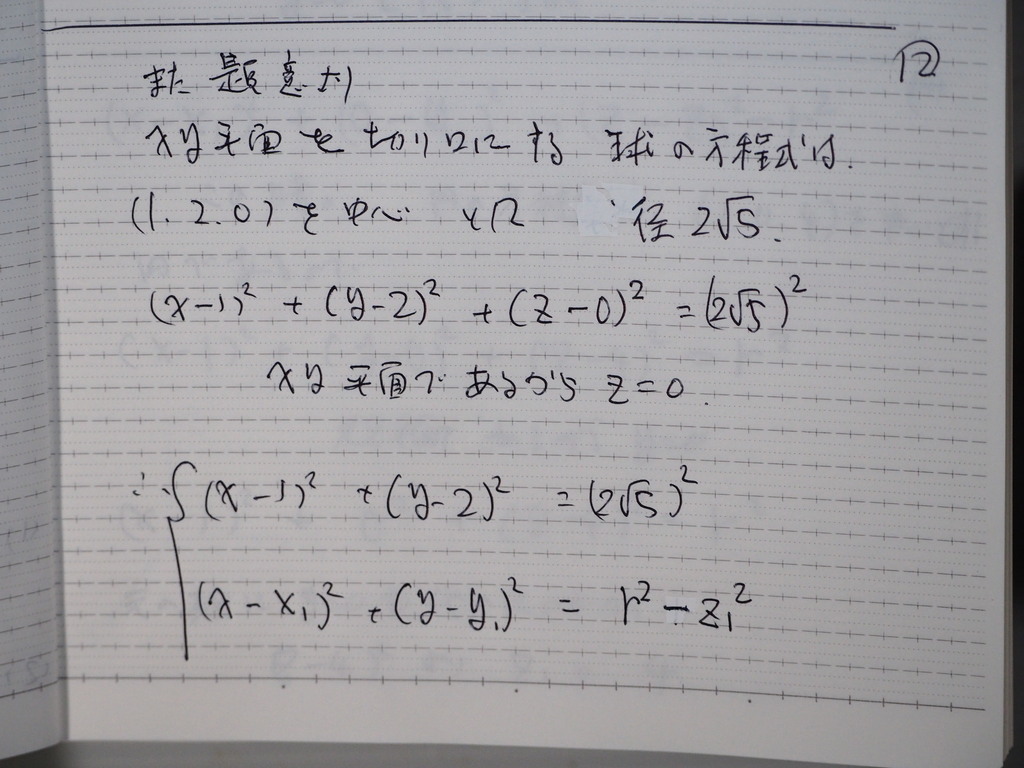 ⑫
また題意より
xy平面を切り口にする 球の方程式は.
(1. 2. 0)を中心 径 2√5.
(x-1)² + (y-2)² + (z-0)² = (2√5)²
xy平面であるから z=0.
∴ { (x-1)² + (y-2)² = (2√5)²
(x-x₁)² + (y-y₁)² = r² - z₁²